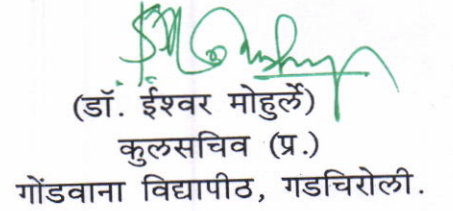 (डॉ. ईश्वर मोहुर्ले)
कुलसचिव (प्र.)
गोंडवाना विद्यापीठ, गडचिरोली.